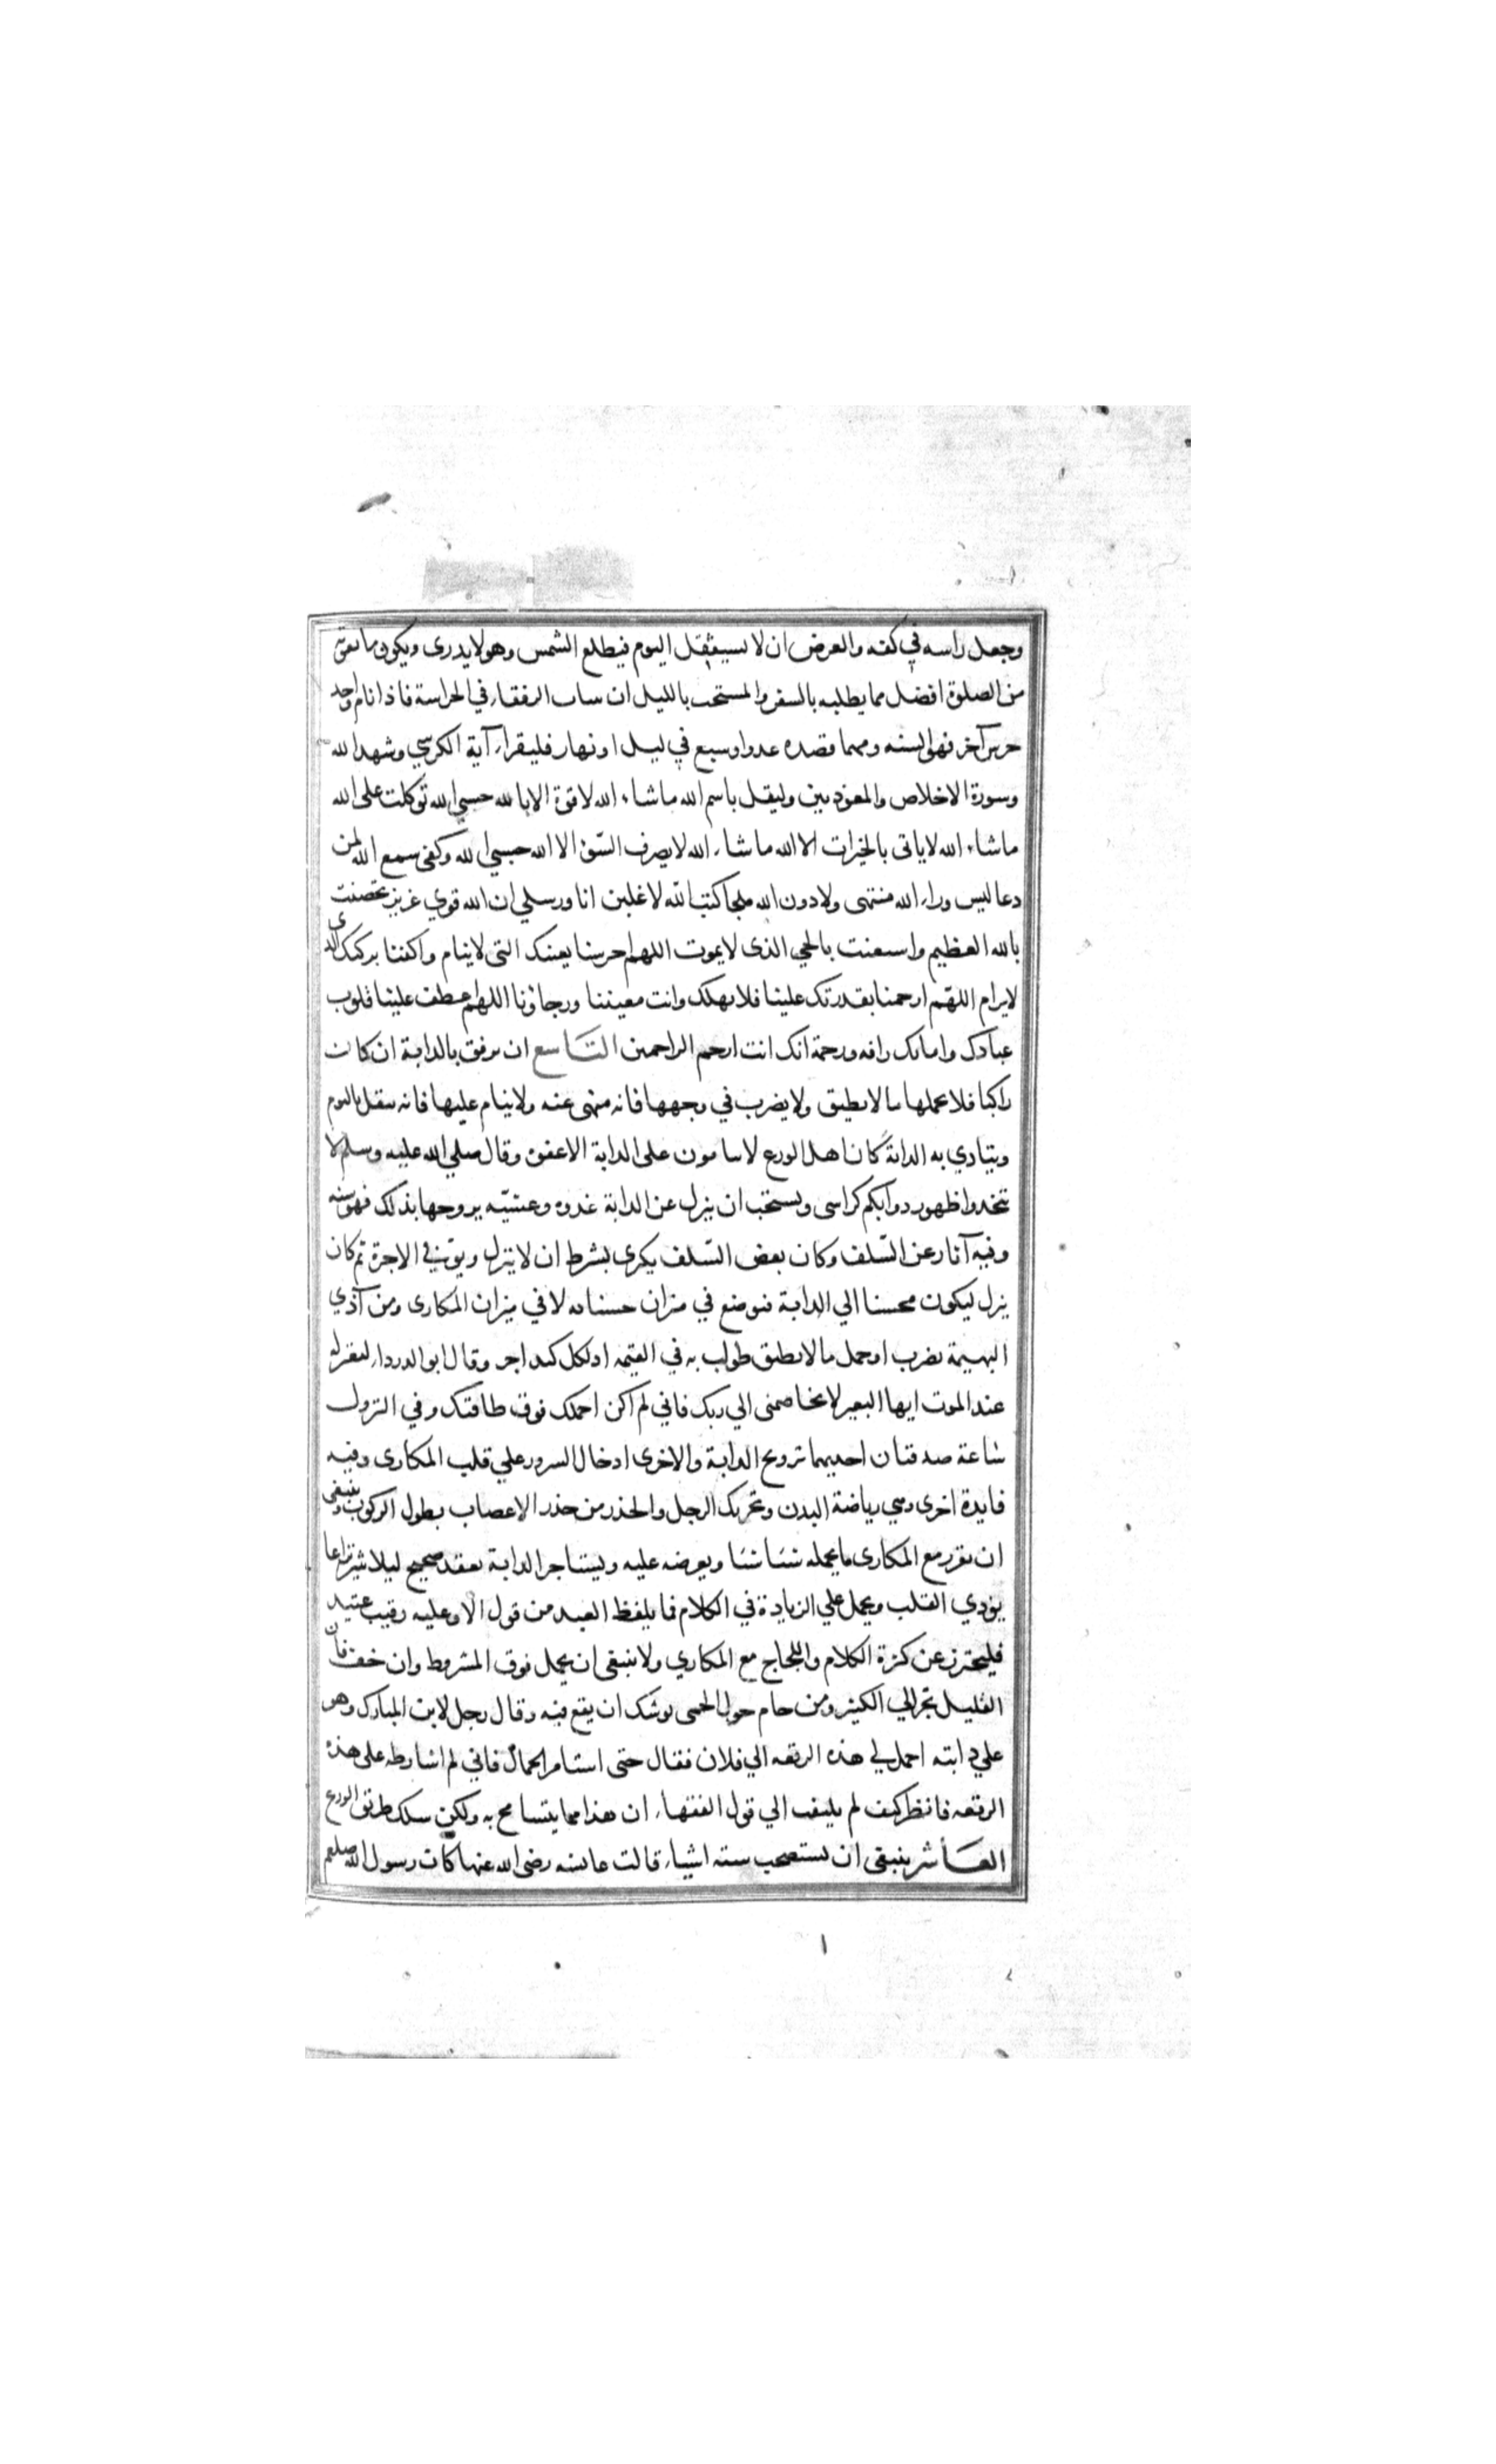 وجعل راسه في كفه والغرض ان لا يستثقل النوم فيطلع الشمس وهو لا يدرى ويكون ما يفوته
من الصلوة افضل مما يطلبه بالسفر والمستحب بالليل ان يتناوب الرفقاء في الحراسة فاذا نام واحد
حرس آخر فهو السنه ومهما قصده عدو او سبع في ليل او نهار فليقراء آية الكرسي وشهد الله
وسورة الاخلاص والمعوذتين وليقل باسم الله ماشاء الله لا قوة الا بالله حسبي الله توكلت على الله
ماشاء الله لا ياتى بالخيرات الا الله ماشاء الله لا يصرف السّوء الا الله حسبي الله وكفى سمع الله لمن
دعا ليس وراء الله منتهى ولا دون الله ملجا كتب الله لاغلبن انا ورسلي ان الله قوي عزيز تحصنت
بالله العظيم واستعنت بالحي الذى لا يموت اللهم احرسنا بعينك التى لا ينام واكنفنا بركنك الذى
لا يرام اللهّم ارحمنا بقدرتك علينا فلا نهلك وانت معيننا ورجاؤنا اللهم اعطف علينا قلوب
عبادك وامائك رافه ورحمة انك انت ارحم الراحمين التاسع ان يرفق بالدابة ان كان
راكبا فلا يحملها ما لا يطيق ولا يضرب في وجهها فانه منهى عنه ولا ينام عليها فانه يثقل بالنوم
ويتاذي به الدابة كان اهل الورع لا ينامون على الدابة الا غفوة وقال صلي الله عليه وسلم لا
تتخذوا ظهور دوآبكم كراسى ويستحب ان ينزل عن الدابة غدوه وعشيّه يروحها بذلك فهو سنه
وفيه آثار عن السّلف وكان بعض السّلف يكرى بشرط ان لا ينزل ويوفي الاجرة ثم كان
ينزل ليكون محسنا الي الدابة فيوضع في ميزان حسناته لا في ميزان المكارى ومن آذي
البهيمة بضرب او حمل ما لا يطيق طولب به في القيمه اذ لكل كبد اجر وقال ابو الدرداء لبعير له
عند الموت ايها البعير لا تخاصمنى الي ربك فاني لم اكن احملك فوق طاقتك وفي النزول
ساعة صدقتان احديهما ترويح الدابة والاخرى ادخال السرور علي قلب المكارى وفيه
فايدة اخرى وهي رياضة البدن وتحريك الرجل والحذر من خدر الاعصاب بطول الركوب وينبغى
ان يقرر مع المكارى ما يحمله شيئا شيئا ويعرضه عليه ويستاجر الدابة بعقد صحيح ليلا يثير نزاعا
يؤدي القلب ويحمل علي الزيادة في الكلام فما يلفظ العبد من قول الا وعليه رقيب عتيد
فليحترز عن كثرة الكلام واللجاج مع المكاري ولا ينبغى ان يحمل فوق المشروط وان خف فان
القليل يجر الي الكثير ومن حام حول الحمى يوشك ان يقع فيه وقال رجل لابن المبارك وهو
علي دابته احمل لي هذه الرقعه الي فلان فقال حتى استامر الجمال فاني لم اشارطه على هذه
الرقعه فانظر كيف لم يلتفت الي قول الفقهاء ان هذا مما يتسامح به ولكن سلك طريق الورع
العاشر ينبغى ان يستصحب سته اشياء قالت عايشه رضى الله عنها كان رسول الله صلعم